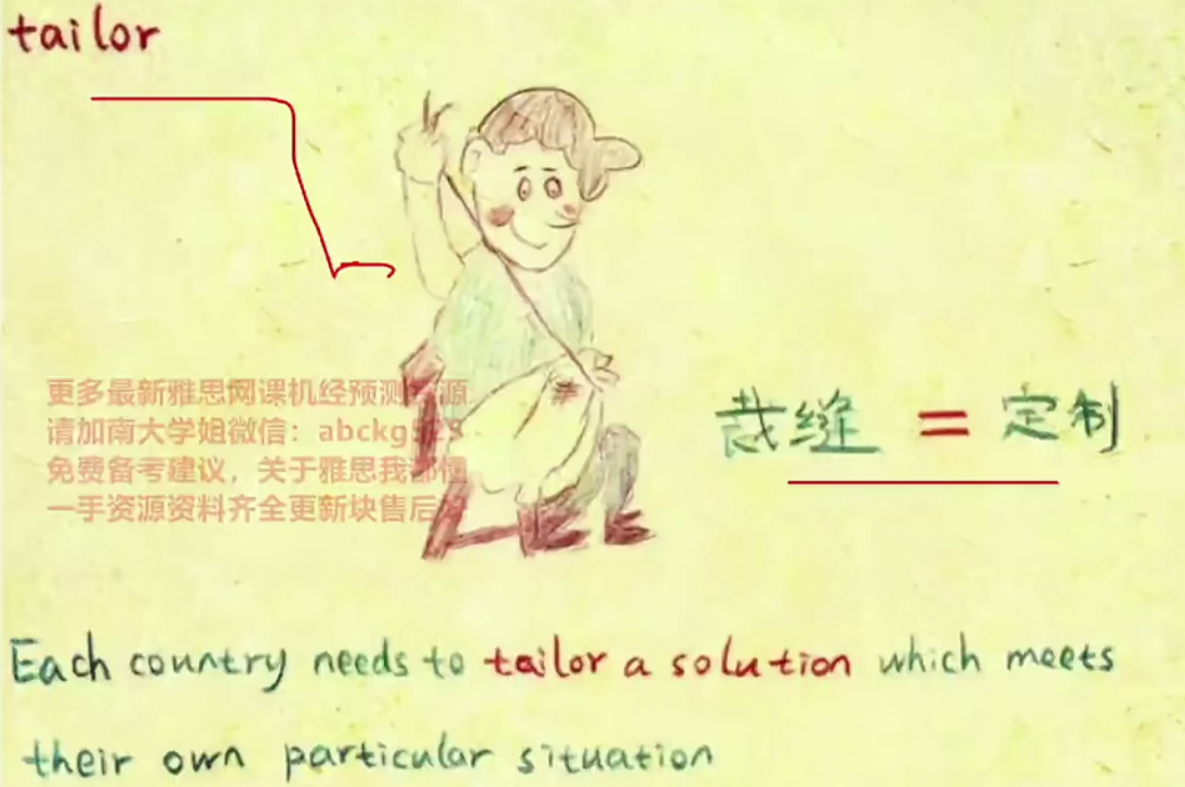 tailor
更多最新雅思网课机经预测资源
请加南大学姐微信：abckg
免费备考建议，关于雅思我都懂
一手资源资料齐全更新块售后
裁缝 = 定制
Each country needs to tailor a solution which meets
their own particular situation